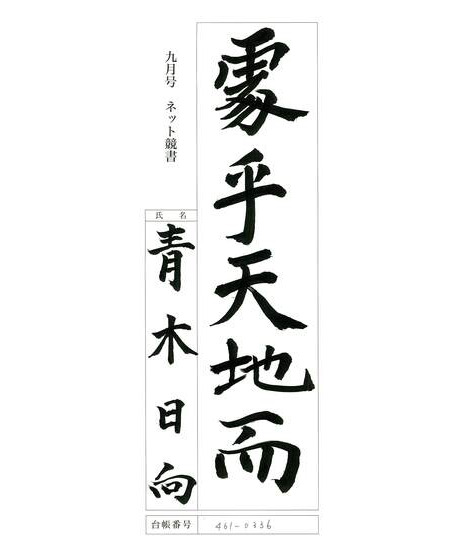 處乎天地而
九月号 ネット競書
氏名
青木日向
台帳番号
461-0336